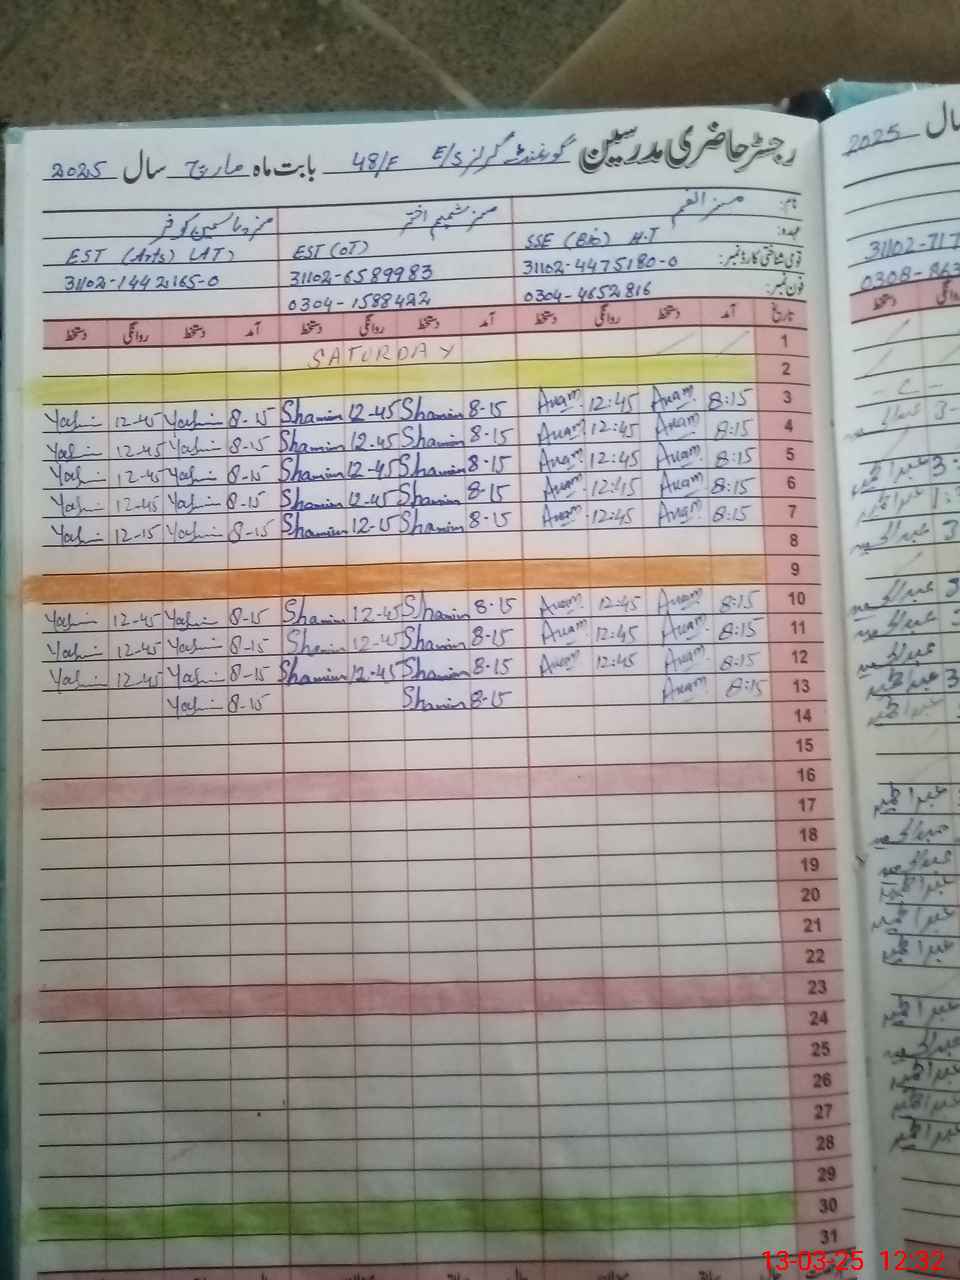 رجسٹر حاضری مدرسین گورنمنٹ گرلز E/S 48/F بابت ماہ مارچ سال 2025
نام: مسز انعم مسز شمیم اختر مسز یاسمین کوثر
عہدہ: SSE (Bio) H.T EST (OT) EST (Arts) (AT)
قومی شناختی کارڈ نمبر: 31102-4475180-0 31102-6589983 31102-1442165-0
فون نمبر: 0304-4652816 0304-1588422
تاریخ آمد دستخط روانگی دستخط آمد دستخط روانگی دستخط آمد دستخط روانگی دستخط
1 SATURDAY
2
3 8:15 Anam 12:45 Anam 8-15 Shamim 12-45 Shamim 8-15 Yasmin 12-45 Yasmin
4 8:15 Anam 12:45 Anam 8-15 Shamim 12-45 Shamim 8-15 Yasmin 12-45 Yasmin
5 8:15 Anam 12:45 Anam 8-15 Shamim 12-45 Shamim 8-15 Yasmin 12-45 Yasmin
6 8:15 Anam 12:45 Anam 8-15 Shamim 12-45 Shamim 8-15 Yasmin 12-45 Yasmin
7 8:15 Anam 12:45 Anam 8-15 Shamim 12-15 Shamim 8-15 Yasmin 12-15 Yasmin
8
9
10 8:15 Anam 12:45 Anam 8-15 Shamim 12-45 Shamim 8-15 Yasmin 12-45 Yasmin
11 8:15 Anam 12:45 Anam 8-15 Shamim 12-45 Shamim 8-15 Yasmin 12-45 Yasmin
12 8:15 Anam 12:45 Anam 8-15 Shamim 12-45 Shamim 8-15 Yasmin 12-45 Yasmin
13 8:15 Anam 8-15 Shamim 8-15 Yasmin
14
15
16
17
18
19
20
21
22
23
24
25
26
27
28
29
30
31
سال 2025
31102-717
0308-863
دستخط
13-03-25 12:32